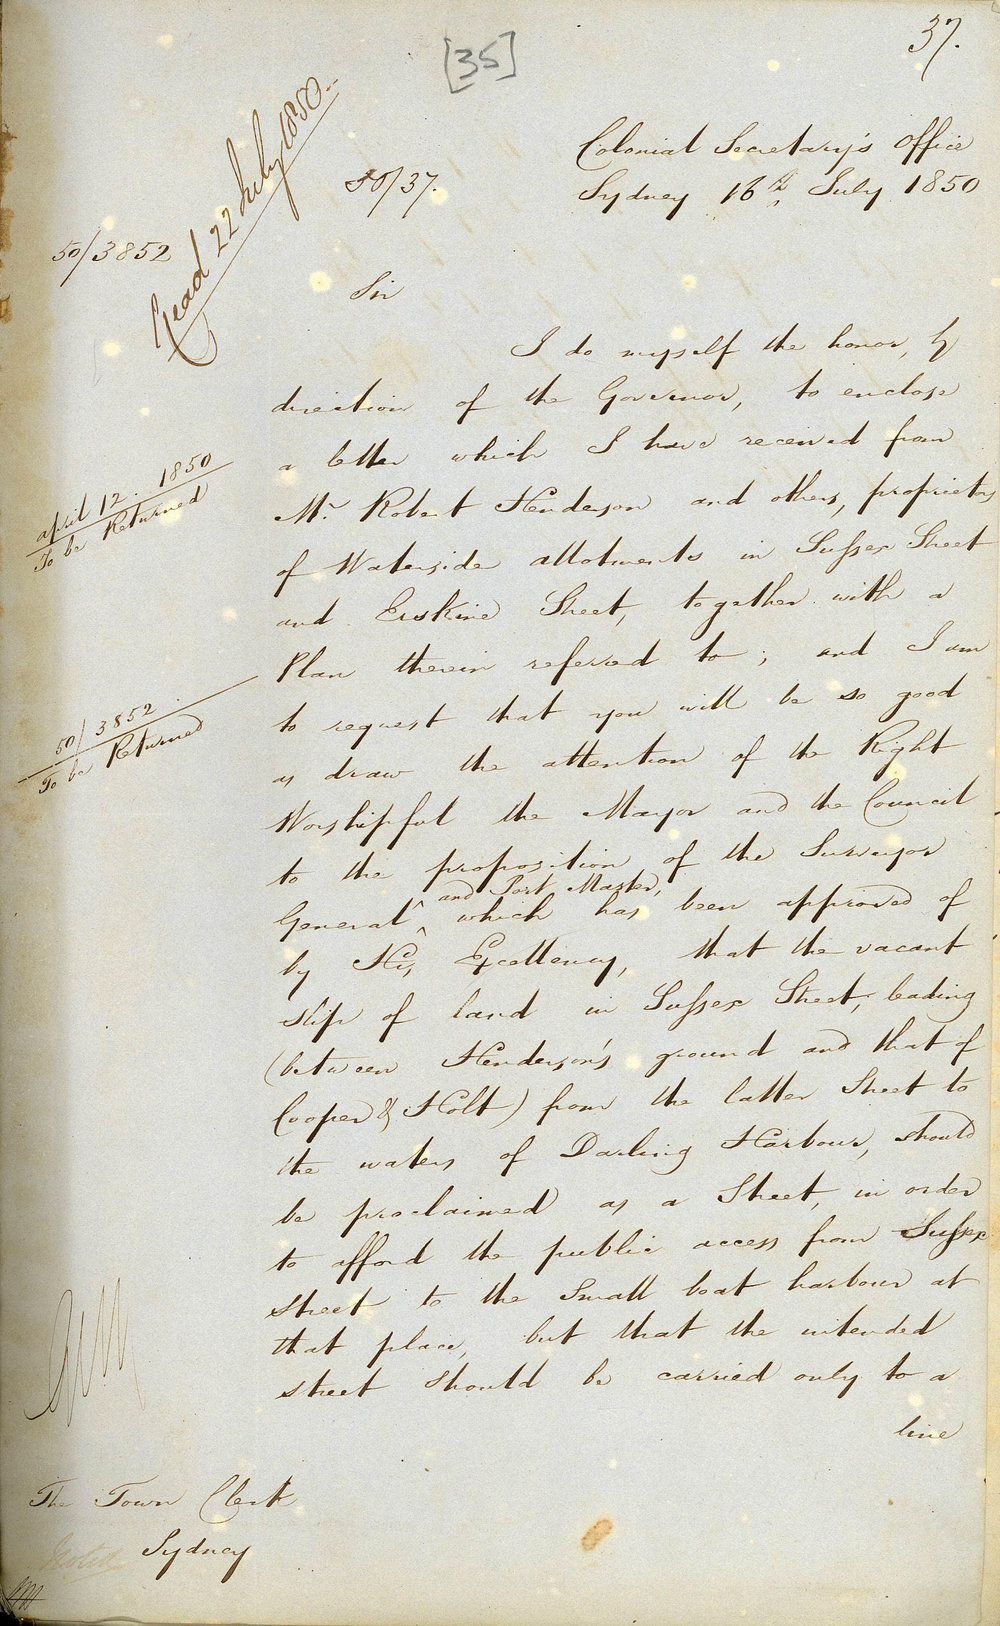 37.
[35]
Colonial Secretary's Office
Sydney 16th July 1850
50/37.
Read 22 July 1850
50/3852
Sir
I do myself the honor, by
direction of the Governor, to enclose
a letter which I have received from
Mr. Robert Henderson and others, proprietors
of Waterside allotments in Sussex Street
and Erskine Street, together with a
Plan therein referred to; and I am
to request that you will be so good
as draw the attention of the Right
Worshipful the Mayor and the Council
to the proposition of the Surveyor
and Port Master,
General which has been approved of
by His Excellency, that the vacant
slip of land in Sussex Street, leading
(between Henderson's ground and that of
Cooper & Holt) from the latter Street to
the waters of Darling Harbour, should
be proclaimed as a Street, in order
to afford the public access from Sussex
street to the Small boat harbour at
that place, but that the intended
street should be carried only to a
line
april 12. 1850
To be Returned
50/3852
To be Returned
The Town Clerk
Sydney